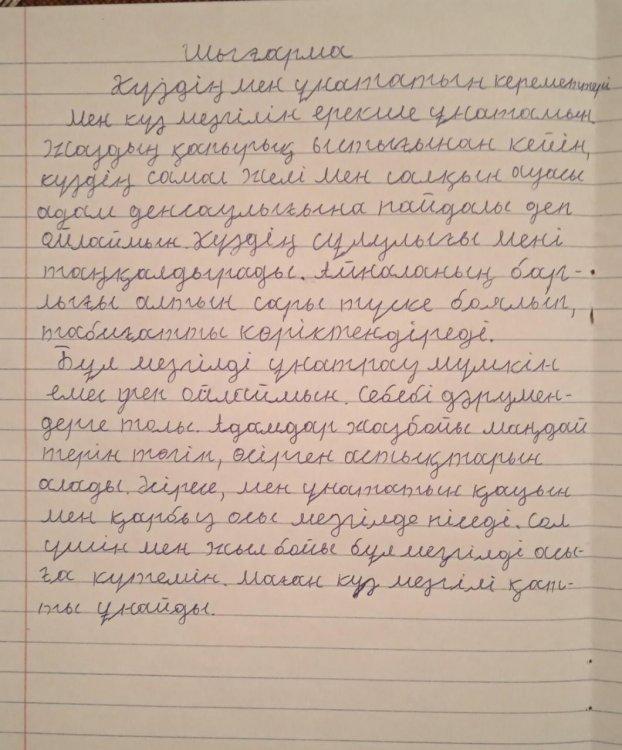 Шығарма
Күздің мен ұнататын кереметтері
Мен күз мезгілін ерекше ұнатамын
Жаздың қапырық ыстығынан кейін,
күздің самал желі мен салқын ауасы
адам денсаулығына пайдалы деп
ойлаймын. Күздің сұлулығы мені
таңқалдырады. Айналаның бар-
лығы алтын сары түске боялып,
табиғатты көріктендіреді.
Бұл мезгілді ұнатпау мүмкін
емес деп ойлаймын. Себебі дәрумен-
дерге толы. Адамдар жазбойы маңдай
терін төгіп, өсірген астықтарын
алады. Әсіресе, мен ұнататын қауын
мен қарбыз осы мезгілде піседі. Сол
үшін мен жыл бойы бұл мезгілді асы-
ға күтемін. Маған күз мезгілі қат-
ты ұнайды.